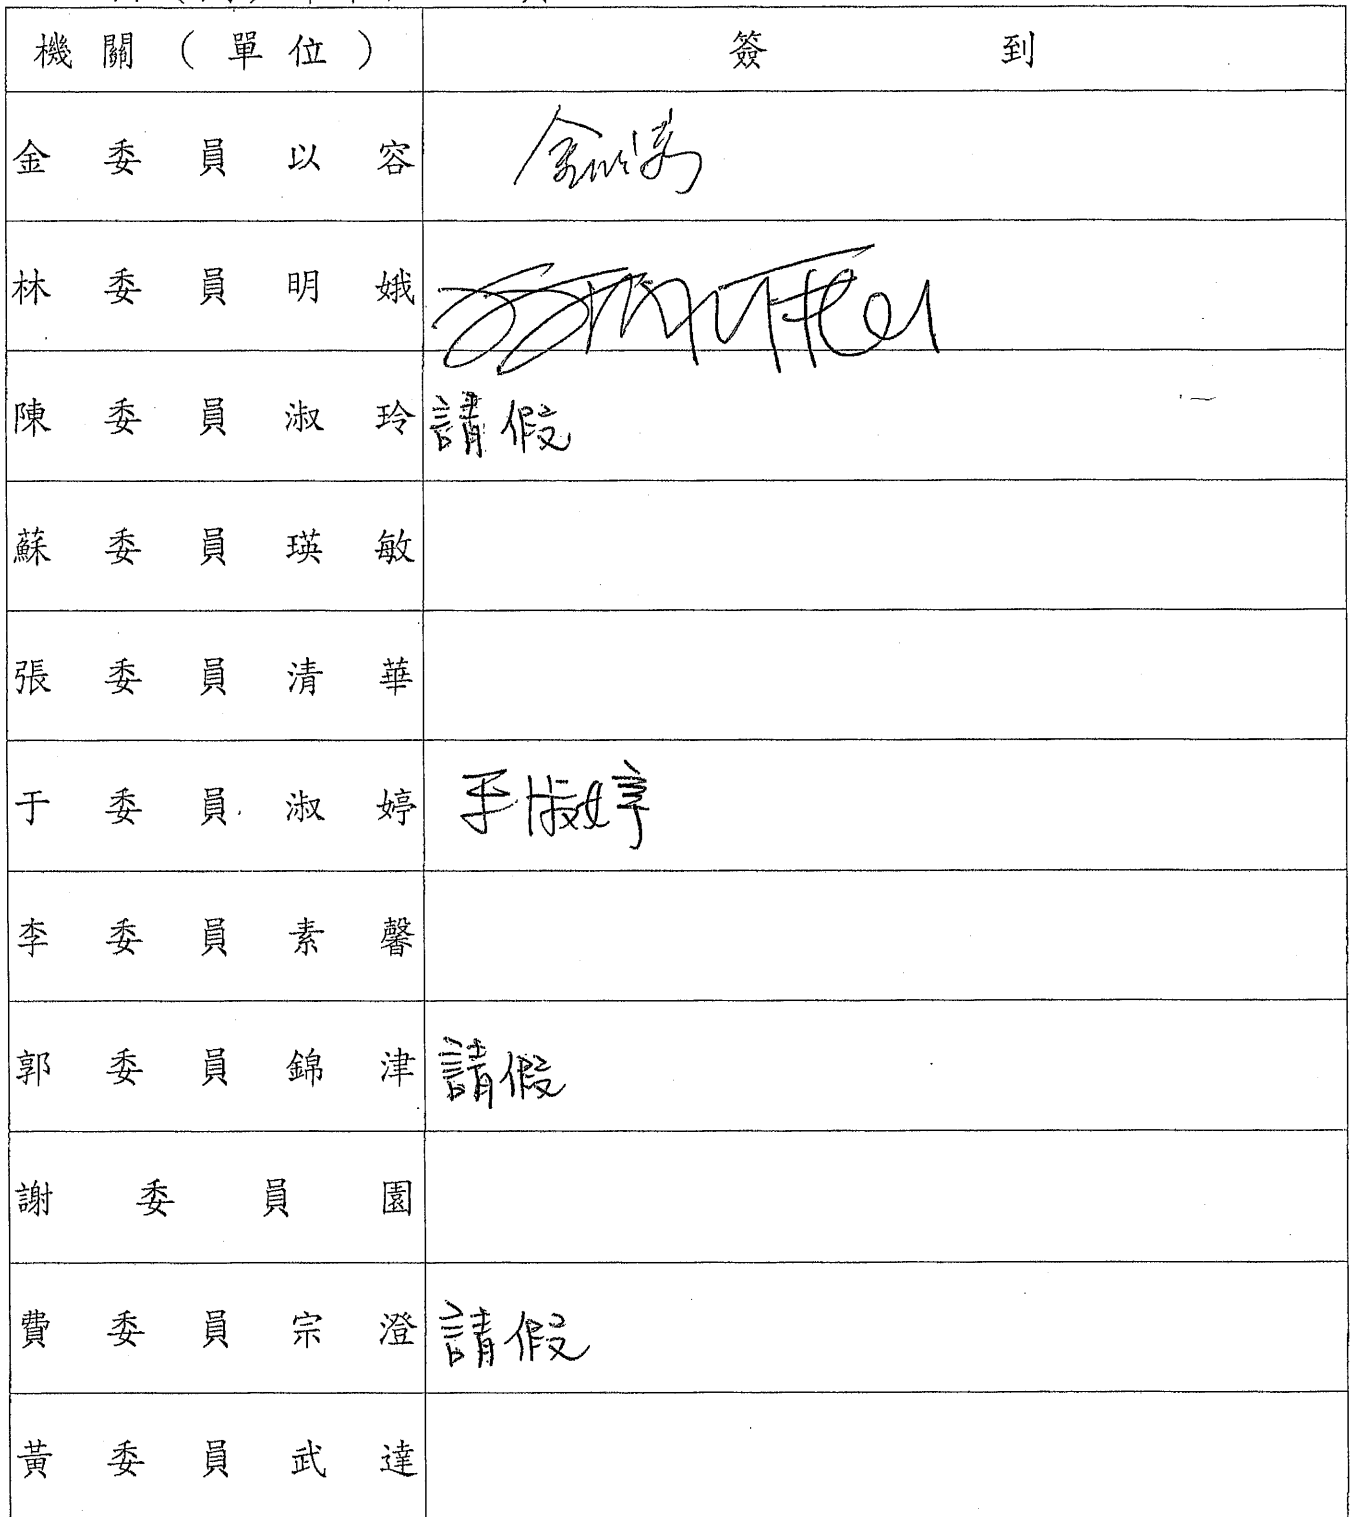 機關(單位) 簽到
金委員以容 金以容
林委員明娥
陳委員淑玲 請假
蘇委員瑛敏
張委員清華
于委員淑婷 于淑婷
李委員素馨
郭委員錦津 請假
謝委員園
費委員宗澄 請假
黃委員武達